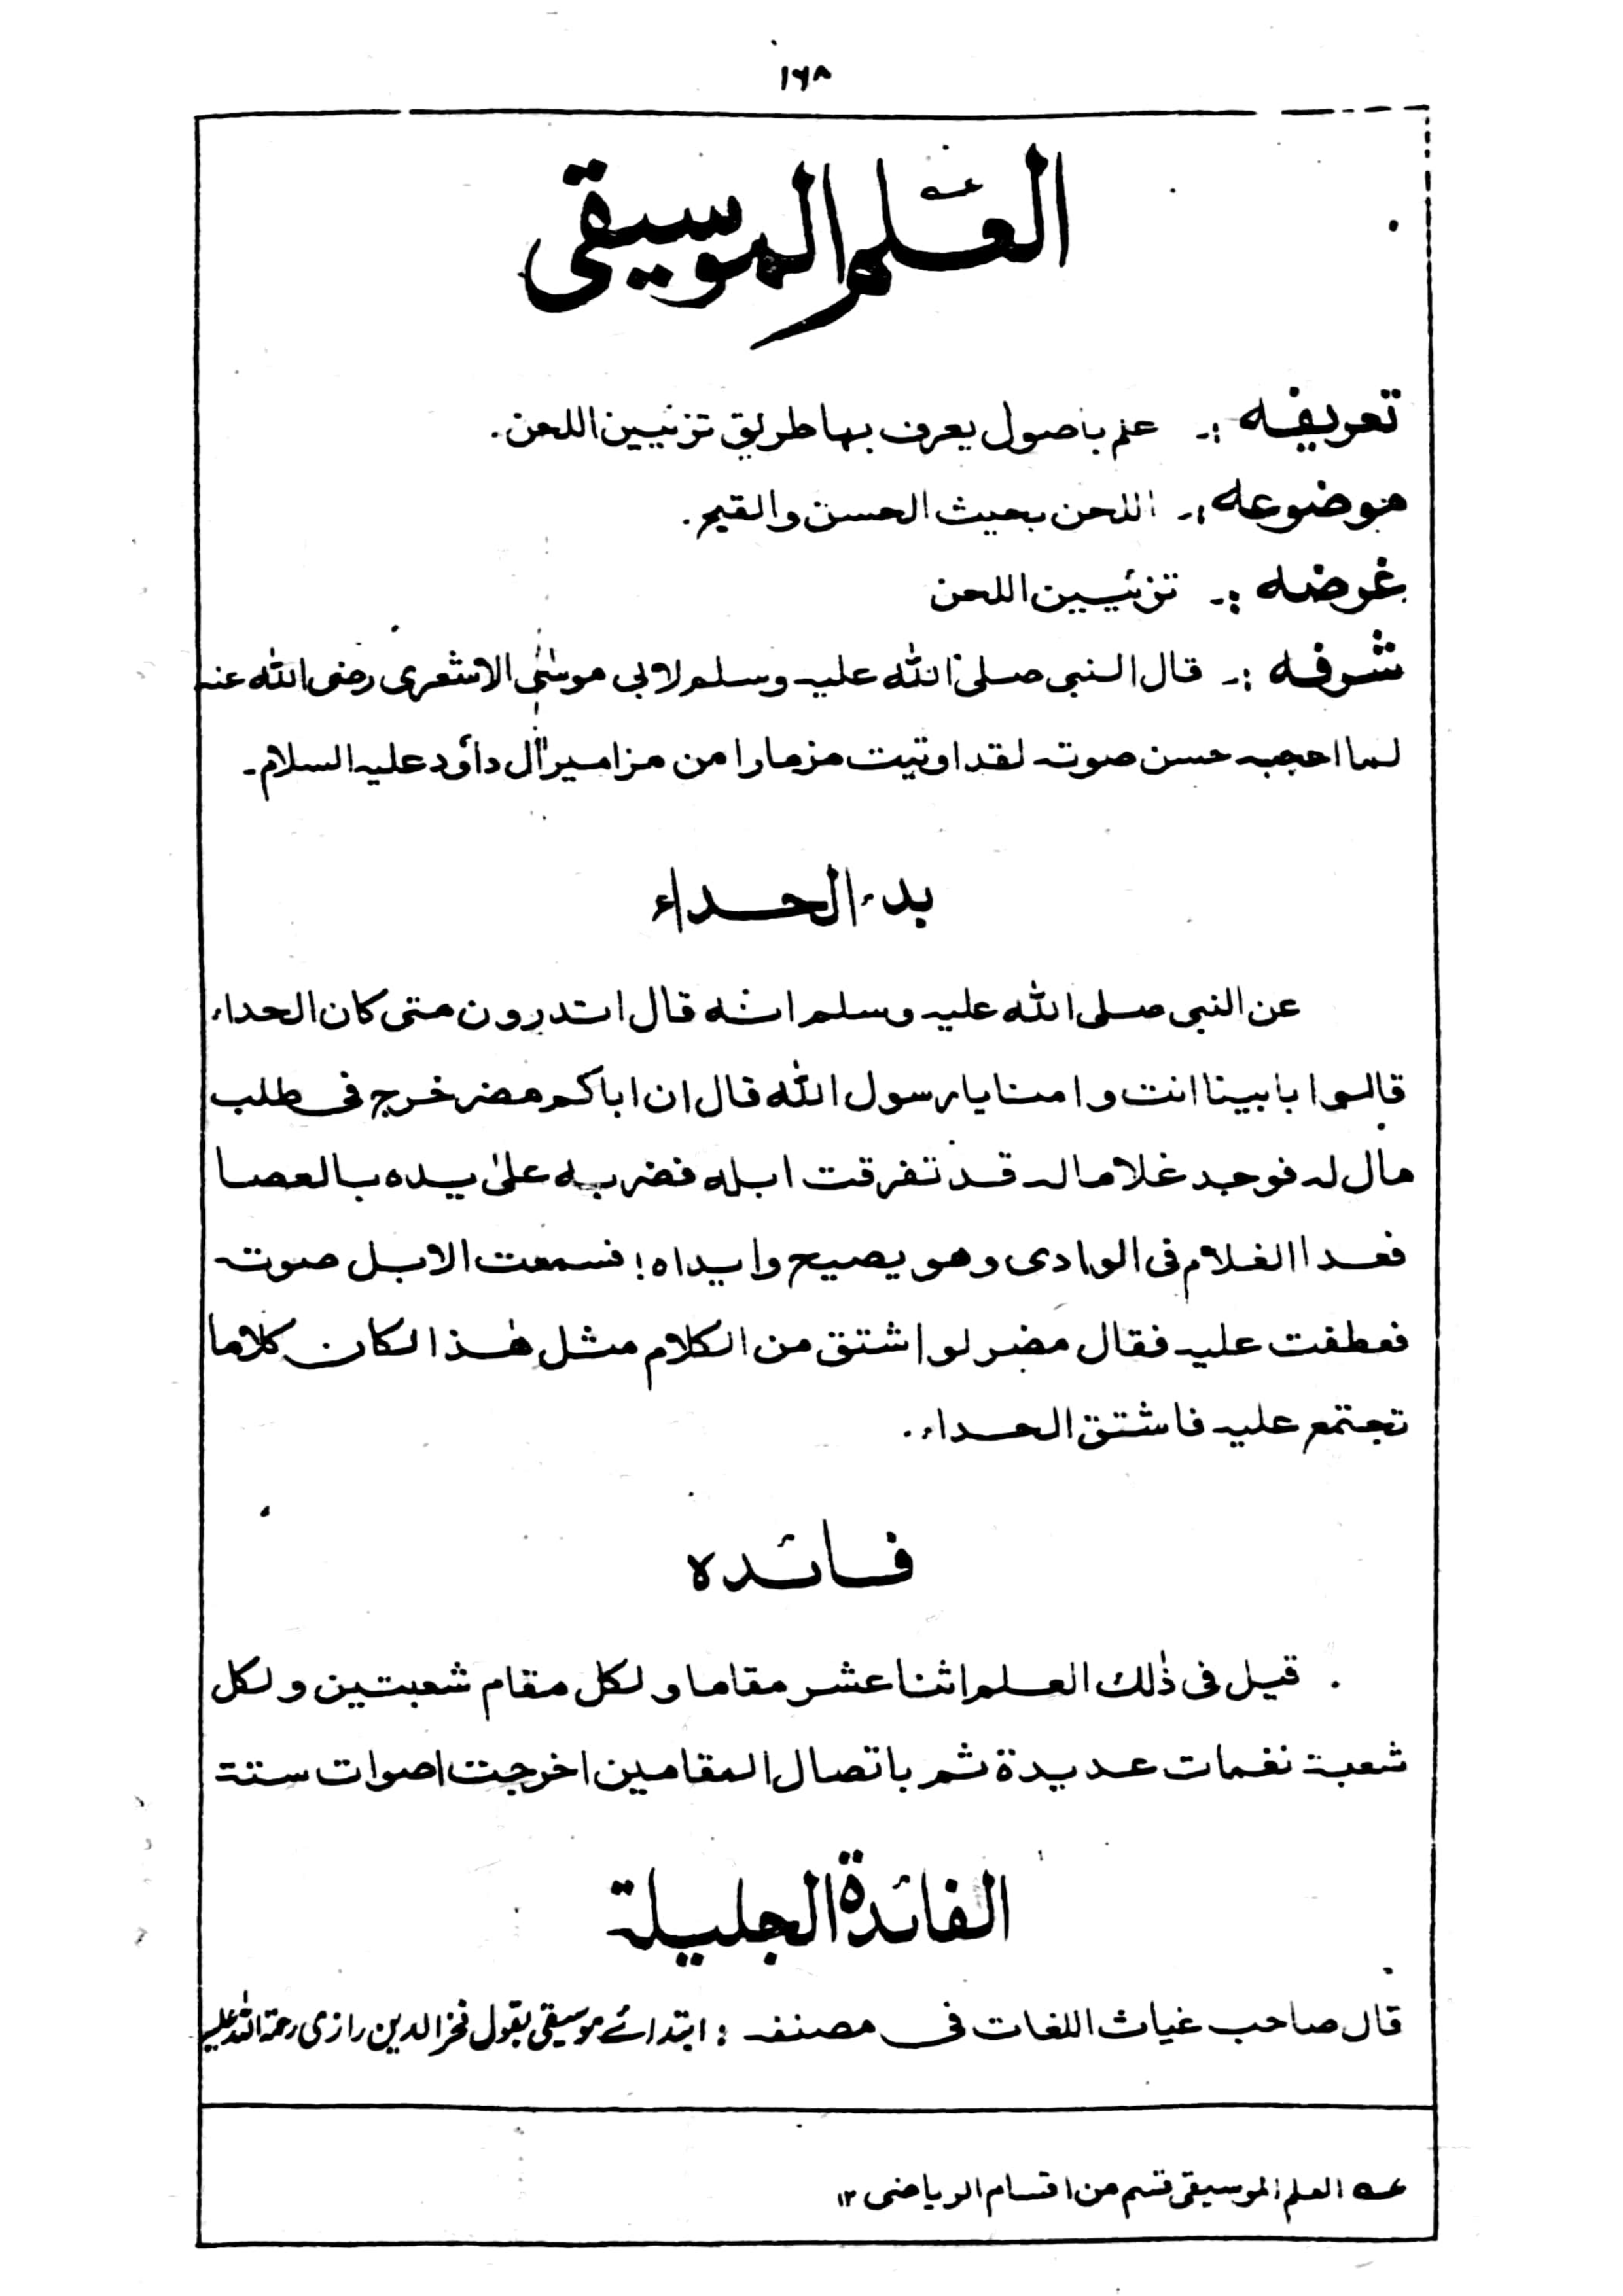 ۱۶۸
العلم الموسیقی
تعریفه :۔ علم باصول یعرف بها طریق تزئیین اللحن.
موضوعه :۔ اللحن بحیث الحسن والقبح.
غرضه :۔ تزئیین اللحن
شرفه :۔ قال النبی صلی الله علیه وسلم لابی موسٰی الاشعری رضی الله عنه
لما احجبه حسن صوته لقد اوتیت مزمارا من مزامیر اٰل داؤد علیه السلام۔
بدء الحداء
عن النبی صلی الله علیه وسلم انه قال اتدرون متی کان الحداء
قالوا بابینا انت وامنا یا رسول الله قال ان اباکم مضر خرج فی طلب
مال له فوجد غلاما له قد تفرقت ابله فضربه علیٰ یده بالعصا
فعدا الغلام فی الوادی وهو یصیح وایداه! فسمعت الابل صوته
فعطفت علیه فقال مضر لو اشتق من الکلام مثل هٰذا لکان کلاما
تجتمع علیه فاشتق الحداء.
فائدہ
قیل فی ذٰلك العلم اثنا عشر مقاما ولکل مقام شعبتین ولکل
شعبة نغمات عدیدة ثم باتصال المقامین اخرجت اصوات ستة
الفائدة الجلیلة
قال صاحب غیاث اللغات فی مصنفه : ابتدائے موسیقی بقول فخر الدین رازی رحمة الله علیه
عه العلم الموسیقی قسم من اقسام الریاضی ۱۲